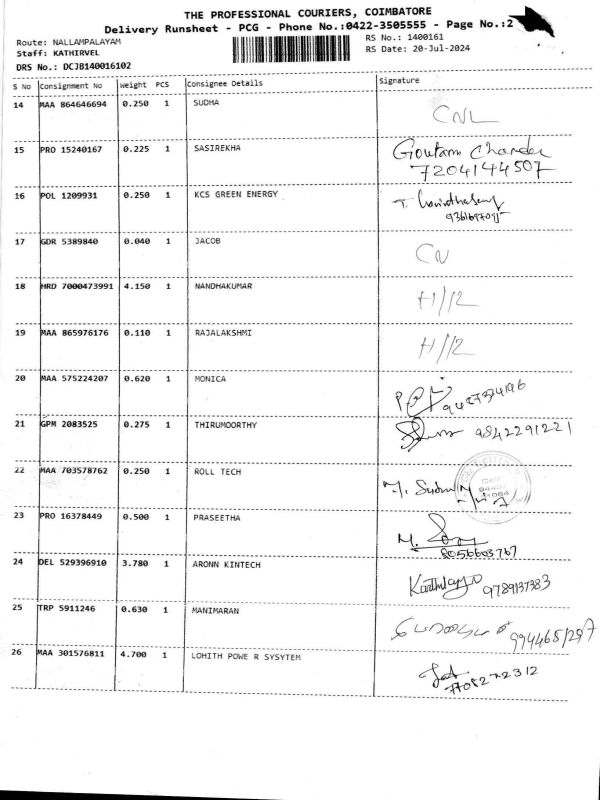 THE PROFESSIONAL COURIERS, COIMBATORE
Delivery Runsheet - PCG - Phone No.:0422-3505555 - Page No.:2
Route: NALLAMPALAYAM
RS No.: 1400161
Staff: KATHIRVEL
RS Date: 20-Jul-2024
DRS No.: DCJB140016102
S No Consignment No Weight PCS Consignee Details Signature
14 MAA 864646694 0.250 1 SUDHA CNL
15 PRO 15240167 0.225 1 SASIREKHA Goutam Chander
7204144507
16 POL 1209931 0.250 1 KCS GREEN ENERGY T.
17 GDR 5389840 0.040 1 JACOB CN
18 HRD 7000473991 4.150 1 NANDHAKUMAR H/12
19 MAA 865976176 0.110 1 RAJALAKSHMI H/12
20 MAA 575224207 0.620 1 MONICA
21 GPM 2083525 0.275 1 THIRUMOORTHY 9842291221
22 MAA 703578762 0.250 1 ROLL TECH
23 PRO 16378449 0.500 1 PRASEETHA M.
8056603767
24 DEL 529396910 3.780 1 ARONN KINTECH 9789137383
25 TRP 5911246 0.630 1 MANIMARAN
26 MAA 301576811 4.700 1 LOHITH POWE R SYSYTEM